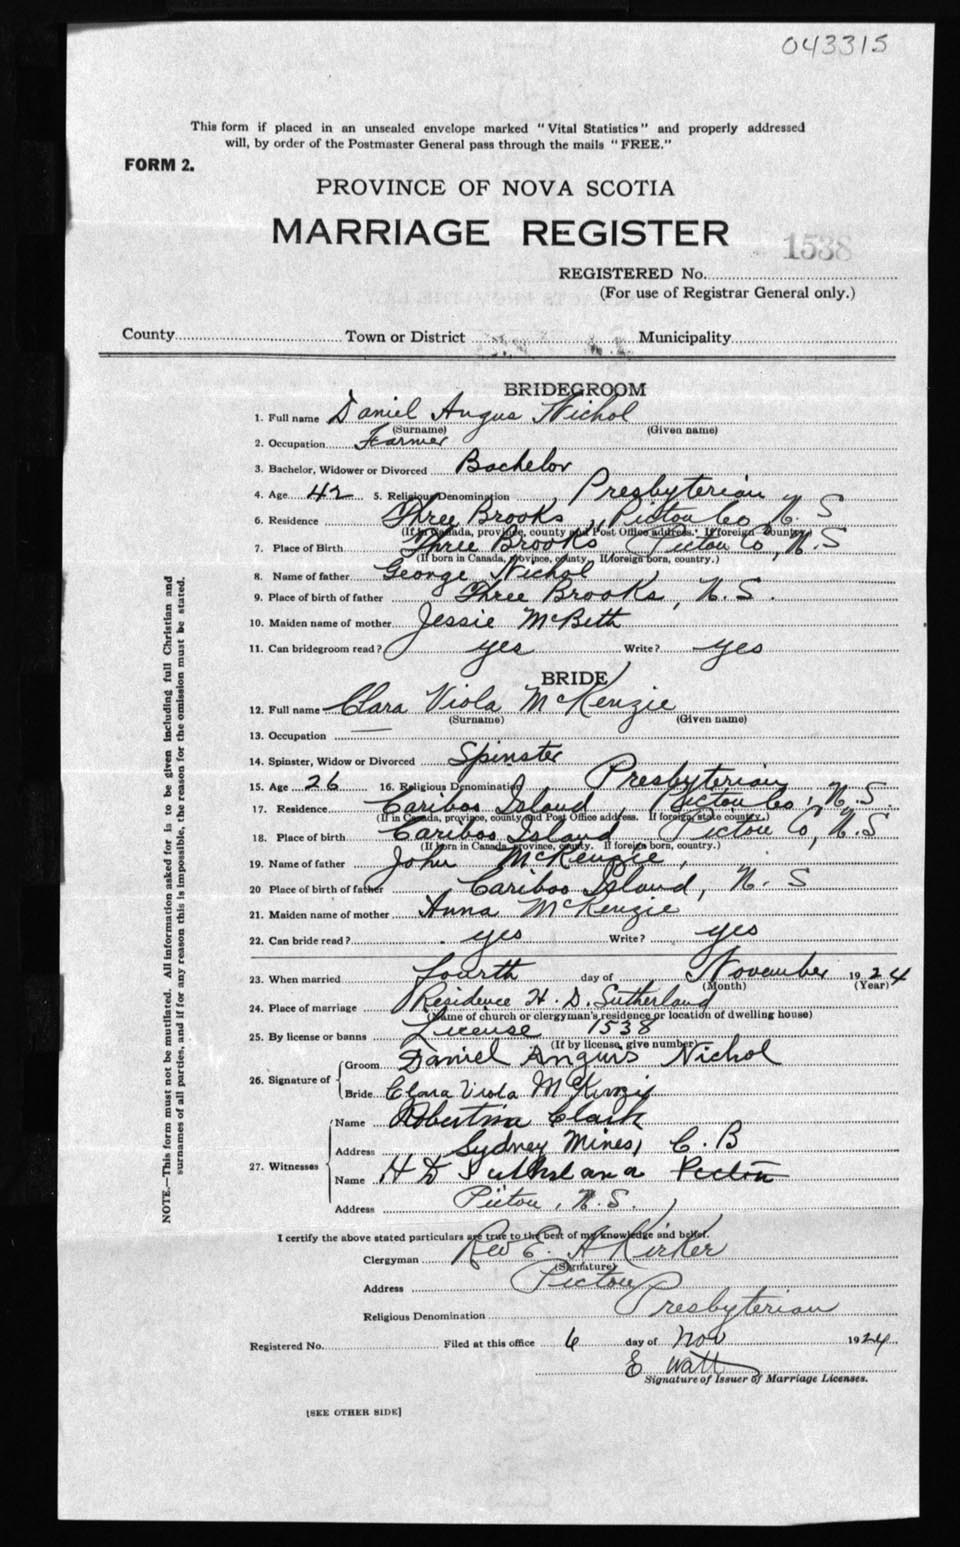 043315
This form if placed in an unsealed envelope marked "Vital Statistics" and properly addressed
will, by order of the Postmaster General pass through the mails "FREE."
FORM 2.
PROVINCE OF NOVA SCOTIA
MARRIAGE REGISTER
1538
REGISTERED No.
(For use of Registrar General only.)
County Town or District Municipality
BRIDEGROOM
1. Full name Daniel Angus Nichol
(Surname) (Given name)
2. Occupation Farmer
3. Bachelor, Widower or Divorced Bachelor
4. Age 42 5. Religious Denomination Presbyterian
6. Residence Three Brooks, Pictou Co N. S
(If in Canada, province, county and Post Office address. If foreign country.)
7. Place of Birth Three Brooks Pictou Co, N. S
(If born in Canada, province, county. If foreign born, country.)
8. Name of father George Nichol
9. Place of birth of father Three Brooks, N. S.
10. Maiden name of mother Jessie McBeth
11. Can bridegroom read? yes Write? yes
BRIDE
12. Full name Clara Viola McKenzie
(Surname) (Given name)
13. Occupation
14. Spinster, Widow or Divorced Spinster
15. Age 26 16. Religious Denomination Presbyterian
17. Residence Cariboo Island, Pictou Co, N. S.
(If in Canada, province, county and Post Office address. If foreign, state country.)
18. Place of birth Cariboo Island Pictou Co, N. S
(If born in Canada, province, county. If foreign born, country.)
19. Name of father John McKenzie,
20 Place of birth of father Cariboo Island, N. S
21. Maiden name of mother Anna McKenzie
22. Can bride read? yes Write? yes
23. When married fourth day of November 1924
(Month) (Year)
24. Place of marriage Residence H. D. Sutherland
(Name of church or clergyman's residence or location of dwelling house)
25. By license or banns License 1538
(If by license, give number)
26. Signature of
Groom Daniel Angus Nichol
Bride Clara Viola McKinzie
27. Witnesses
Name Robertina Clark
Address Sydney Mines, C. B
Name H D Sutherland Pictou
Address Pictou, N. S.
I certify the above stated particulars are true to the best of my knowledge and belief.
Clergyman Rev C. A Kirker
(Signature)
Address Pictou
Religious Denomination Presbyterian
Registered No. Filed at this office 6 day of Nov 1924
E Watt
Signature of Issuer of Marriage Licenses.
[SEE OTHER SIDE]
NOTE.—This form must not be mutilated. All information asked for is to be given including full Christian and
surnames of all parties, and if for any reason this is impossible, the reason for the omission must be stated.